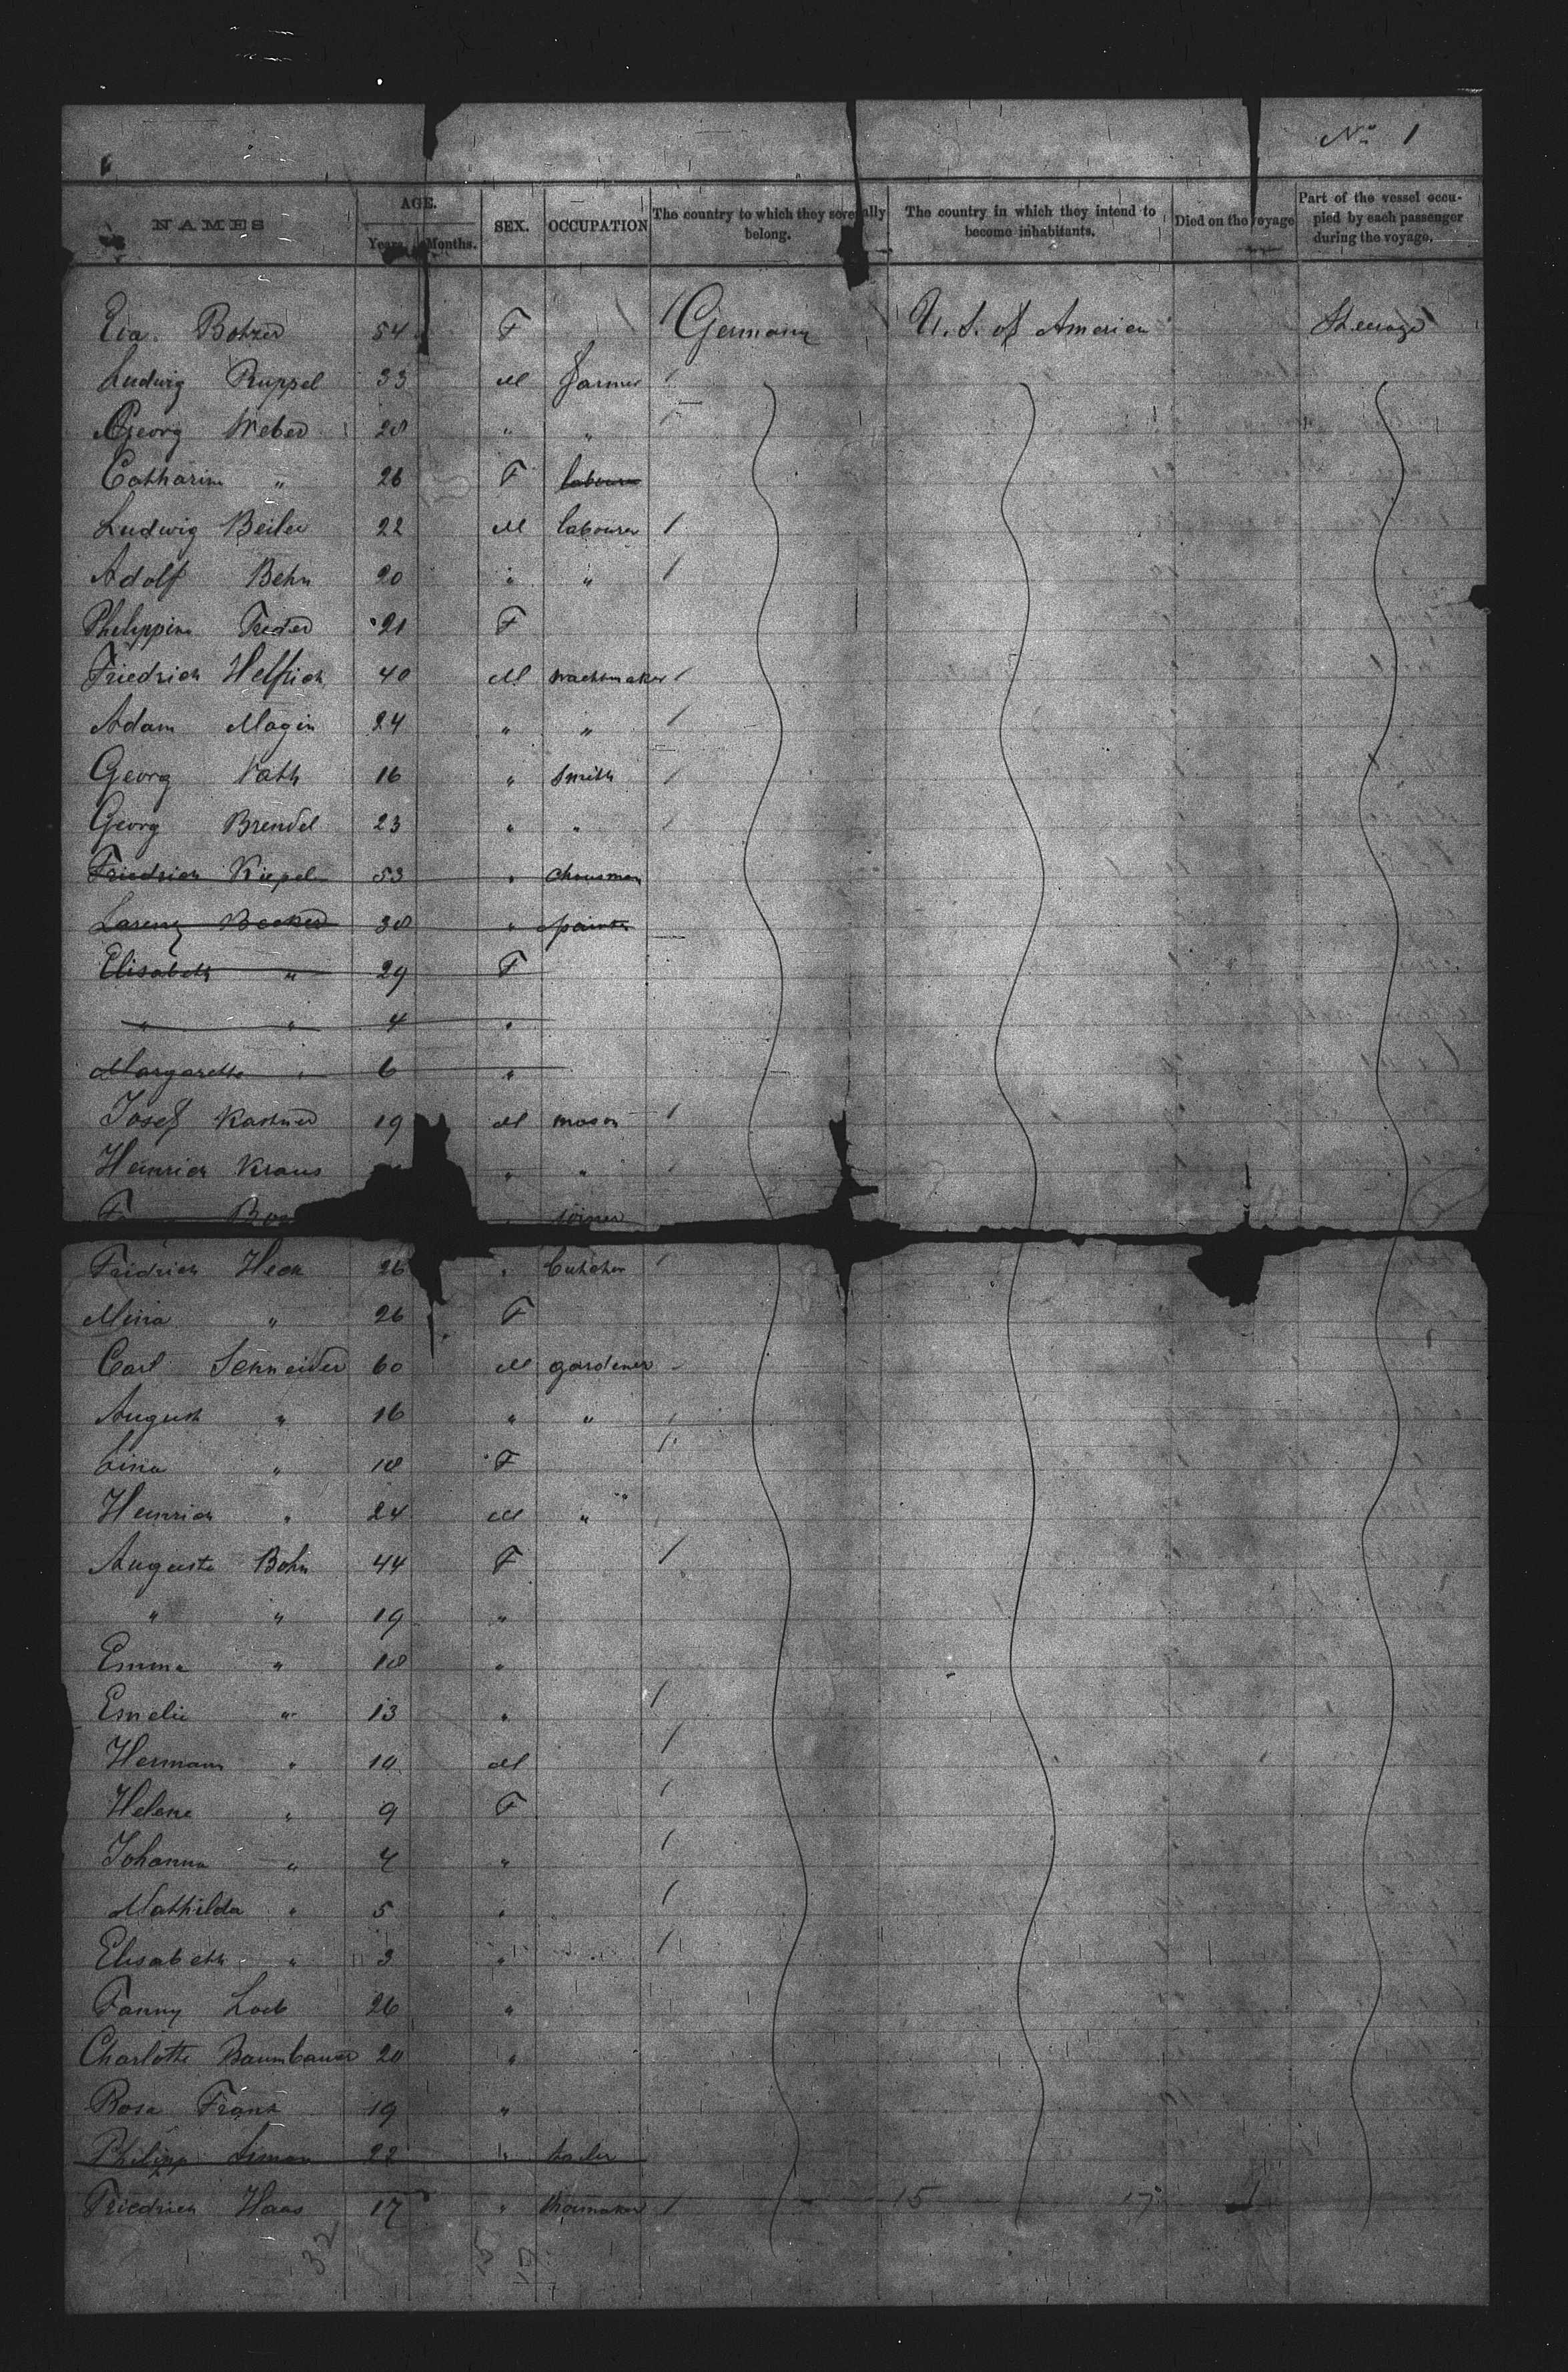 No 1
NAMES AGE. Years. Months. SEX. OCCUPATION The country to which they severally belong. The country in which they intend to become inhabitants. Died on the voyage Part of the vessel occupied by each passenger during the voyage.
Eva 54 F Germany U. S. of America Steerage
Ludwig Ruppel 33 M farmer
Georg Weber 28 " "
Catharina " 26 F labourer
Ludwig Beiler 22 M labourer
Adolf Behn 20 " "
Philippina 21 F
Friedrich Helfrich 40 M wachtmaker
Adam Magin 24 " "
Georg Vath 16 " Smith
Georg Brendel 23 " "
Friedrich 53 "
Lorenz Becker 38 " painter
Elisabeth " 29 F
" " 4 "
Margarethe " 6 "
Josef Kastner 19 M mason
Heinrich Kraus " "
" joiner
Fridrich Heck 26 " butcher
Mina " 26 F
Carl Schneider 60 M gardener
August " 16 " "
Lina " 18 F
Heinrich " 24 M "
Auguste Bohn 44 F
" " 19 "
Emma " 18 "
Emelie " 13 "
Hermann " 10 M
Helene " 9 F
Johanna " 7 "
Mathilda " 5 "
Elisabeth " 3 "
Fanny Loeb 26 "
Charlotte Baumbauer 20 "
Rosa Frank 19 "
Philipp Simon 22 "
Friedrich Haas 17 " shoemaker 15 17
32 15 17